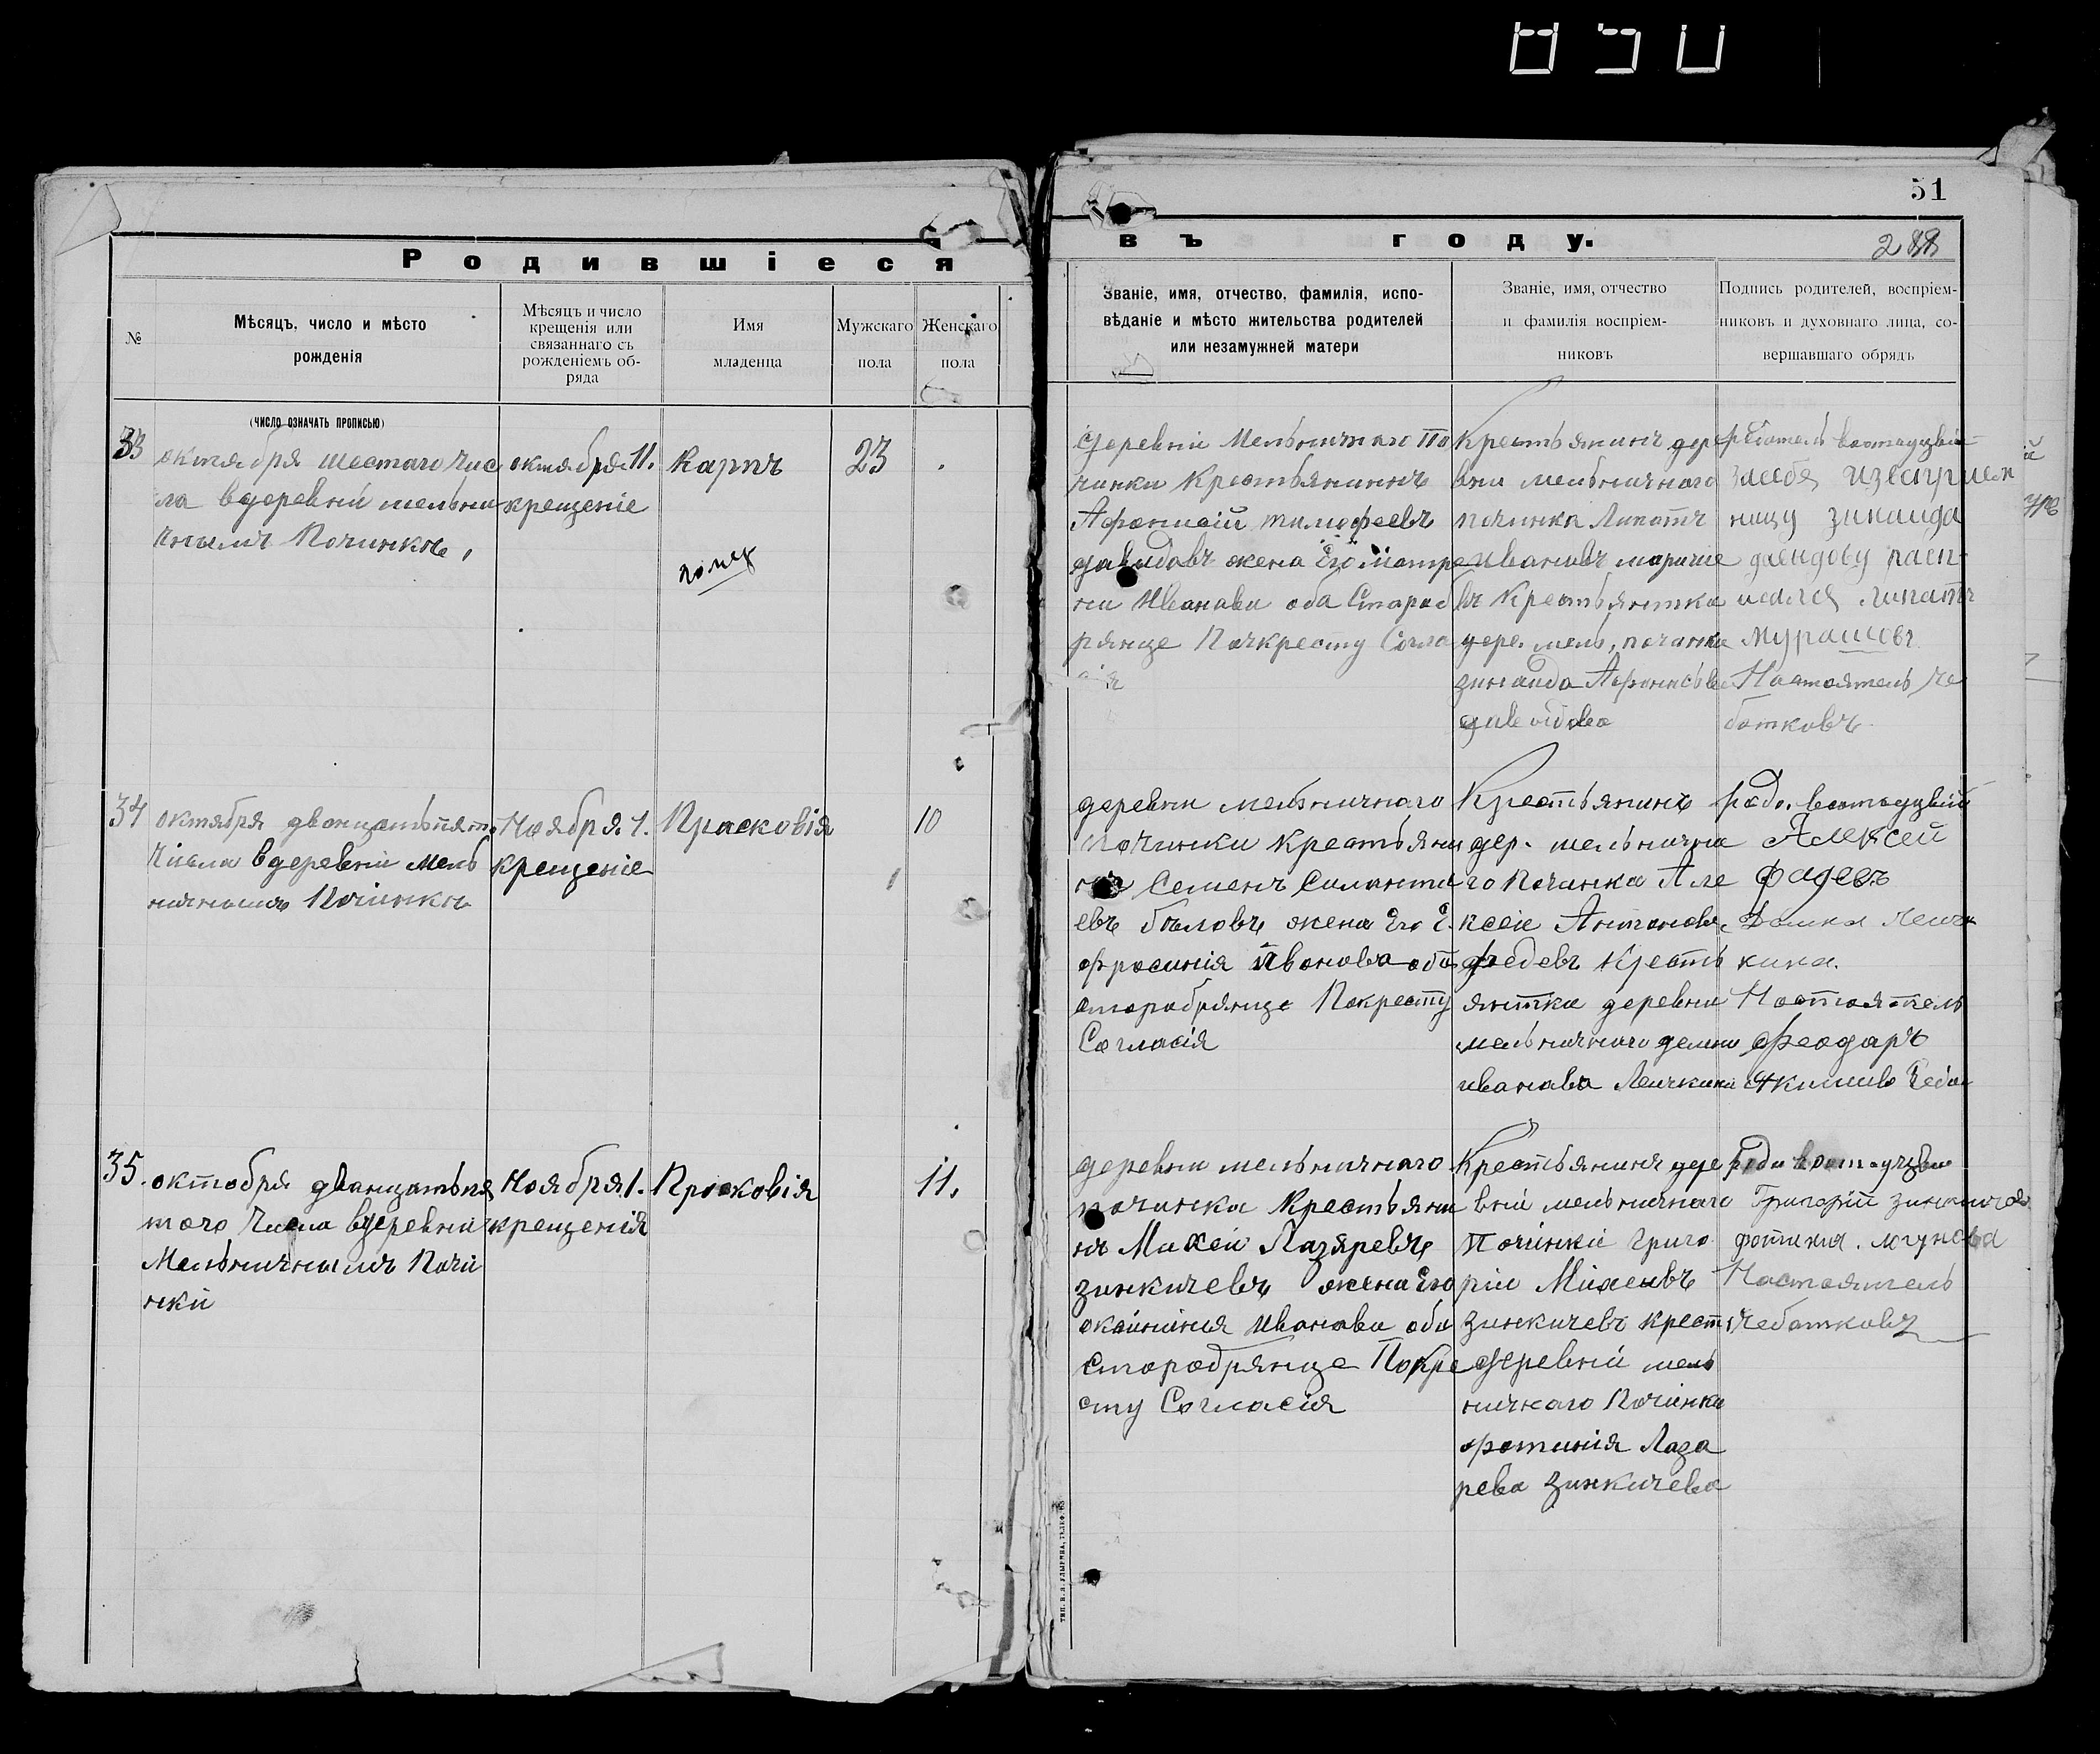 850
51
Родившіеся
въ году.
288
№
Мѣсяцъ, число и мѣсто
рожденія
Мѣсяцъ и число
крещенія или
связаннаго съ
рожденіемъ об-
ряда
Имя
младенца
Мужскаго
пола
Женскаго
пола
Званіе, имя, отчество, фамилія, испо-
вѣданіе и мѣсто жительства родителей
или незамужней матери
Званіе, имя, отчество
и фамилія воспріем-
никовъ
Подпись родителей, воспріем-
никовъ и духовнаго лица, со-
вершавшаго обрядъ
(число означать прописью)
33
октября шестаго чис
ла вдеревни мельни
чнымъ Починке,
октября 11.
крещеніе
Карпъ
23
деревни Мельничнаго По
чинки Крестьянинъ
Афонасій тимофеевъ
давидовъ жена Его Матре
на Иванава оба Староб
рянце Покресту Согла
сія
Крестьянинъ дере
вни мельничнаго
починка Липатъ
Ивановъ
въ Крестьянтка
дере. мель. починка
зинаида Афонасьева
давидова
засебя
ницу зинаида
давидову расп-
исался липатъ
мурашовъ
Настоятель Че
ботковъ
34
октября дванцатьпят.
Числа вдеревни мель
ничнымъ Починке
Ноября 1.
крещеніе
Прасковія
10
деревни мельничнаго
починки крестьяни
Семенъ Силанти
евъ бѣловъ жена Его Е.
фросинія Иванова оба
старобрянце Покресту
Согласія
Крестьянинъ
дер. мельнична
го Починка Але
ксеи Антоновъ
фадевъ Кресть
янтка деревни
мельничнаго домна
иванава Леичкина
Алексей
Фадевъ
Домна Леич
кина.
Настоятель
Феодаръ
35.
октобря дванцатьпя
того Числа вдеревни
Мельничнымъ Почи
нки
Ноября 1.
крещенія
Просковія
11.
деревни мельничнаго
починка Крестьяни
нъ Михеи Лазаревъ
зинкичевъ жена Его
Иванава оба
Старобрянце Покре
сту Согласія
Крестьянинъ дере
вни мельничнаго
Починки Григо
ріи Михеивъ
Зинкичевъ крест
деревни мель
ничнаго Починка
фотинія Лаза
рева Зинкичева
Григорій зинкичев
фотиния. логунова
Настоятель
Чеботковъ